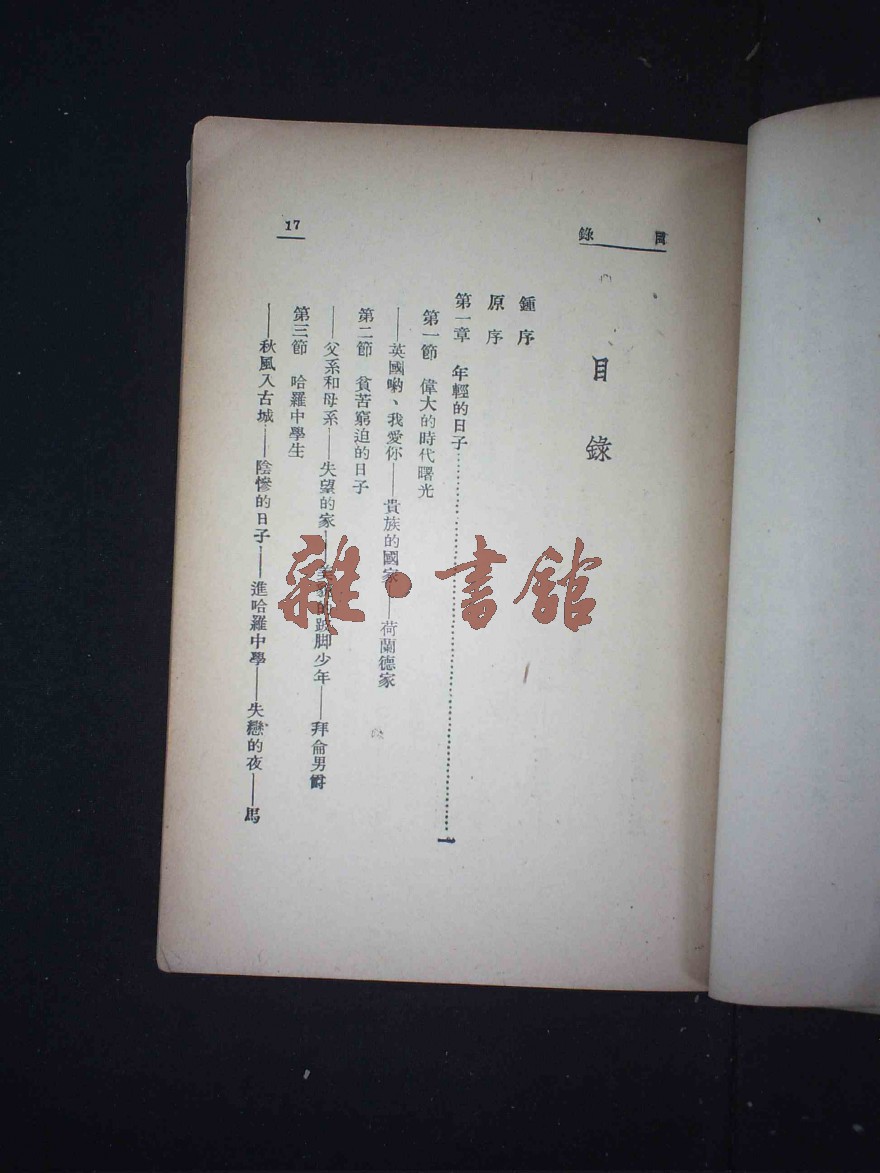 目錄
17
目錄
鍾序
原序
第一章 年輕的日子…………一
第一節 偉大的時代曙光
——英國喲、我愛你——貴族的國家——荷蘭德家
第二節 貧苦窮迫的日子
——父系和母系——失望的家——的跛脚少年——拜倫男爵
第三節 哈羅中學生
——秋風入古城——陰慘的日子——進哈羅中學——失戀的夜——馬
雜·書館